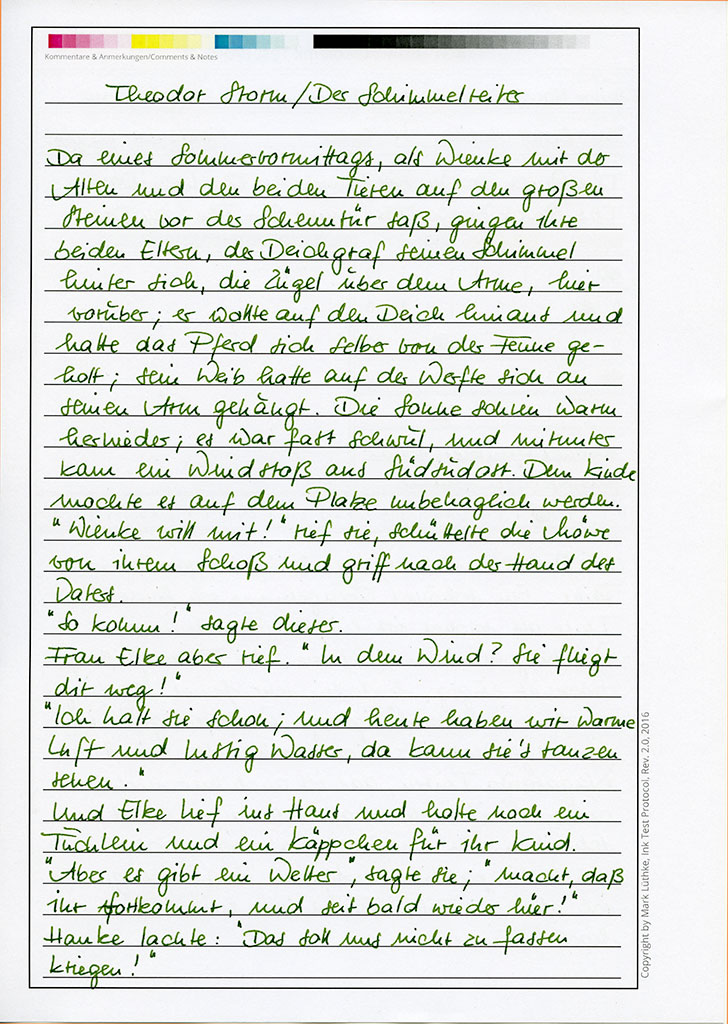 Kommentare & Anmerkungen/Comments & Notes
Theodor Storm/Der Schimmelreiter
Da eines Sommervormittags, als Wienke mit der
Alten und den beiden Tieren auf den großen
Steinen vor der Scheuntür saß, gingen ihre
beiden Eltern, der Deichgraf seinen Schimmel
hinter sich, die Zügel über dem Arme, hier
vorüber; er wollte auf den Deich hinaus und
hatte das Pferd sich selber von der Fenne ge-
holt; sein Weib hatte auf der Werfte sich an
seinen Arm gehängt. Die Sonne schien warm
hernieder; es war fast schwül, und mitunter
kam ein Windstoß aus Südsüdost. Dem Kinde
mochte es auf dem Platze unbehaglich werden.
"Wienke will mit!" rief sie, schüttelte die Möwe
von ihrem Schoß und griff nach der Hand des
Vaters.
"So komm!" sagte dieser.
Frau Elke aber rief. "In dem Wind? Sie fliegt
dir weg!"
"Ich halt sie schon; und heute haben wir warme
Luft und lustig Wasser, da kann sie's tanzen
sehen."
Und Elke lief ins Haus und holte noch ein
Tüchlein und ein Käppchen für ihr Kind.
"Aber es gibt ein Wetter", sagte sie; "macht, daß
ihr fortkommt, und seit bald wieder hier!"
Hauke lachte: "Das soll uns nicht zu fassen
kriegen!"
Copyright by Mark Lüthke, Ink Test Protocol, Rev. 2.0, 2016